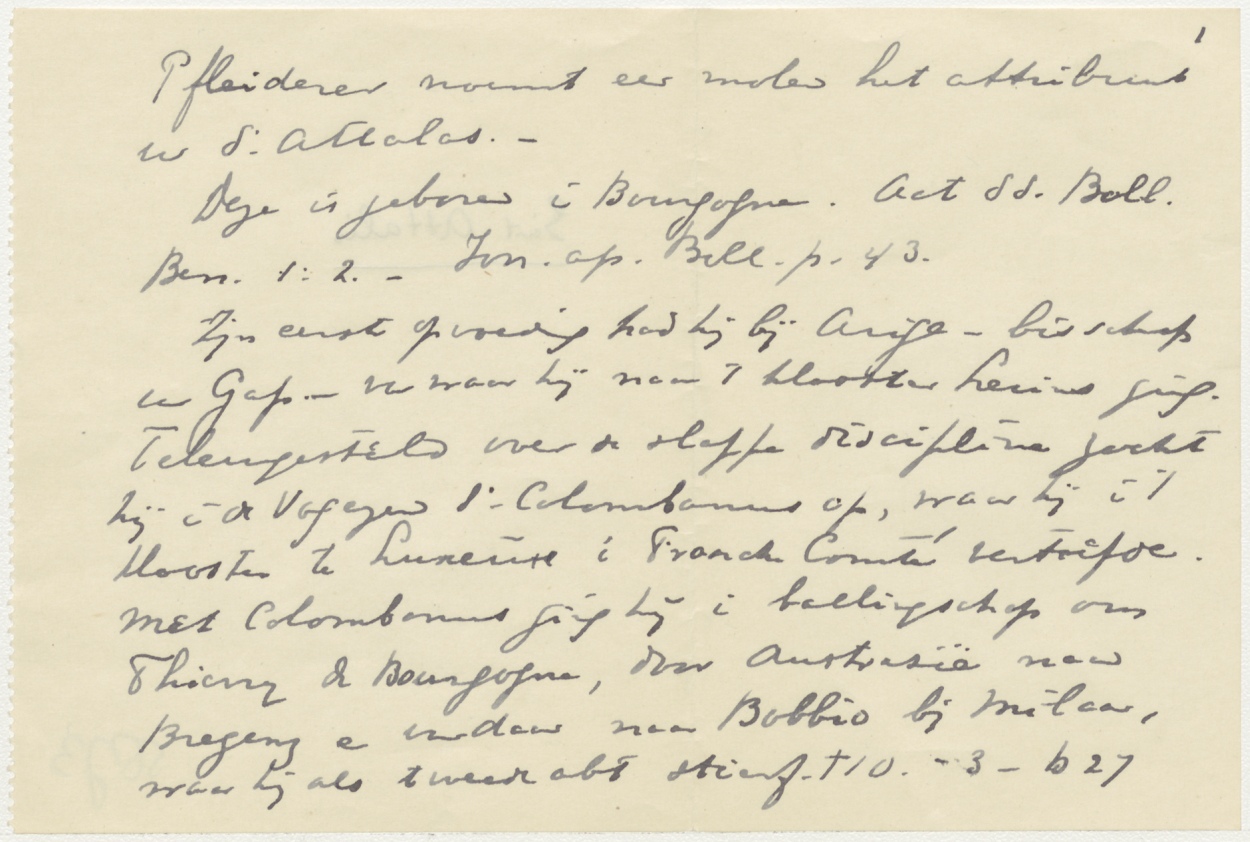 1
Pfleiderer noemt een molen het attribuut
vr St. Attalas. –
Deze is geboren i Bourgogne. Act SS. Boll.
Ben. 1: 2. – Jon. ap. Boll. p. 43.
Zijn eerst opvoedig had hij bij Arige – bisschop
vr Gap. – vr waar hij naar 't klooster Lerins gig.
Teleurgesteld over de slappe discipline zocht
hij i de Vogezen St. Colombanus op, waar hij i 't
klooster te Luxeuil i Franche Comté vertoefde.
Met Colombanus gig hij i ballingschap om
Thierry de Bourgogne, door Austrasië naar
Bregenz e vandaar naar Bobbio bij Milaan,
waar hij als tweede abt stierf. †10. – 3 – 627